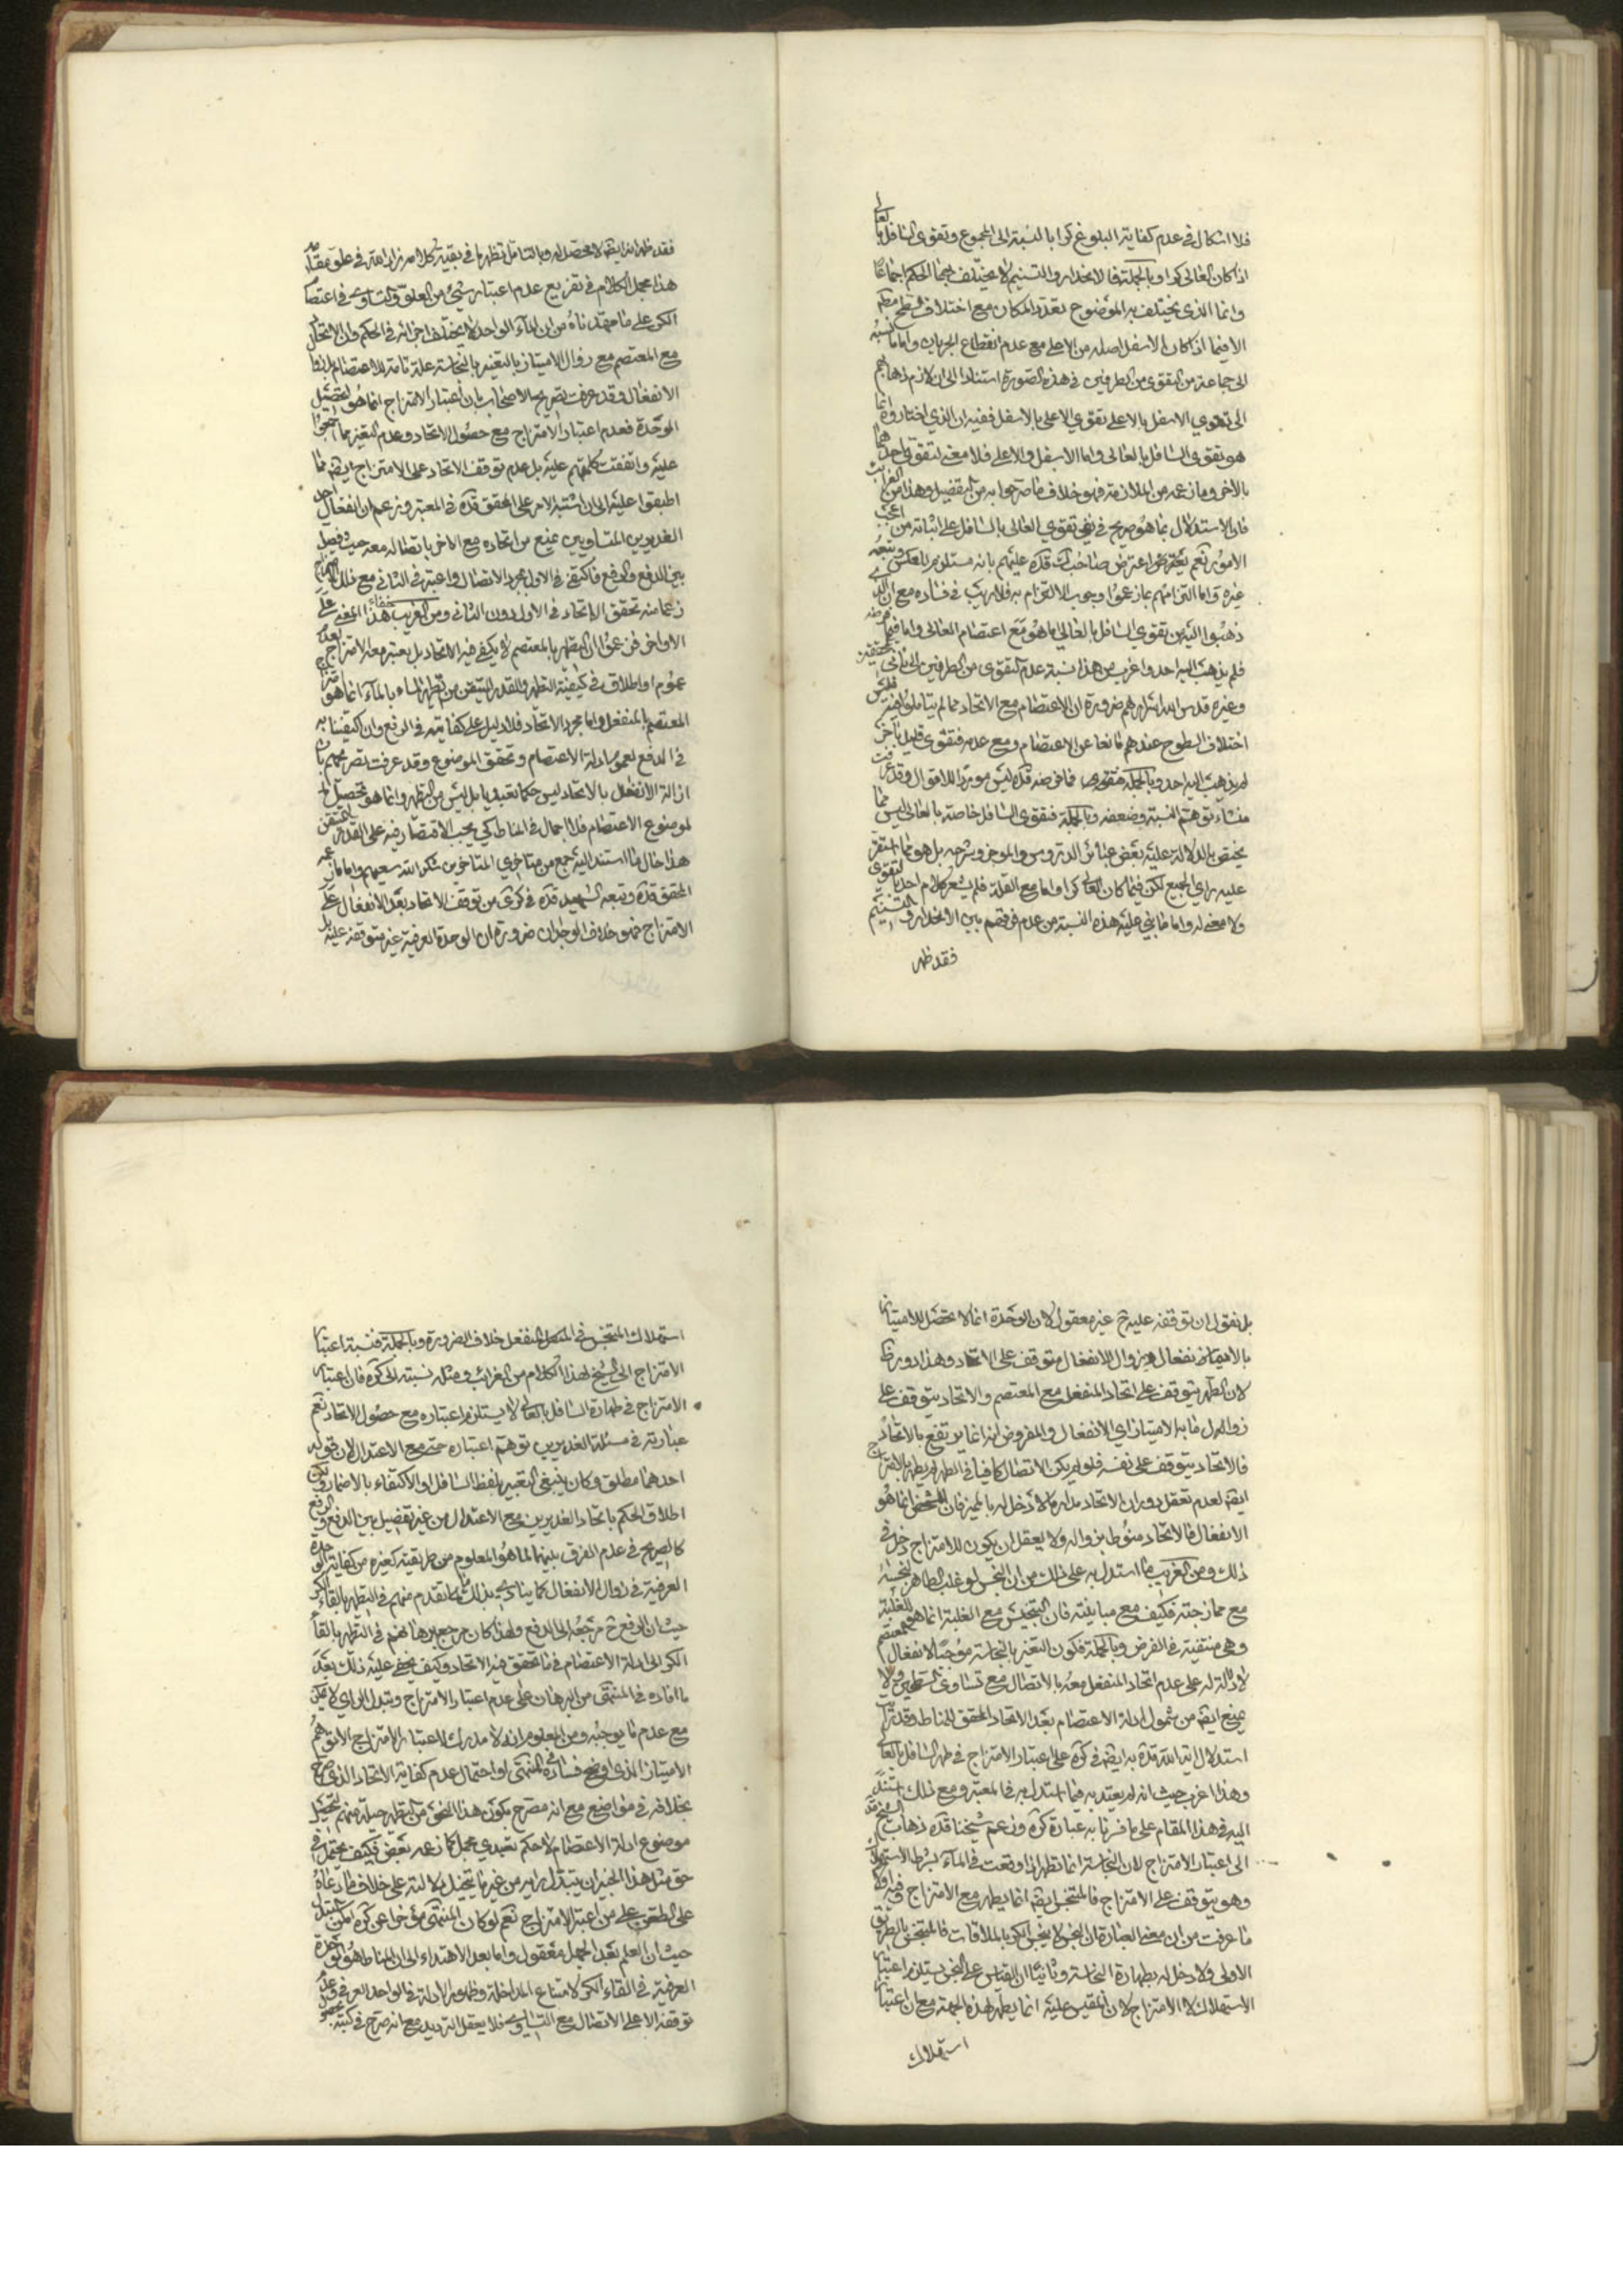 فلا اشكال فى عدم كفاية البلوغ كرا بالنسبة الى المجموع وتقوى السافل بالعالى
اذا كان العالى كرا وبالجملة فالانحدار والتسنيم لا يختلف بهما الحكم اجماعًا
وانما الذى يختلف به الموضوع تعدد المكان مع اختلاف سطح
الا فيما اذا كان الاسفل اصله من الاعلى مع عدم انقطاع الجريان واما ما نسبه
الى جماعة من التقوى من الطرفين فى هذه الصورة استنادا الى ان لازم ذهابهم
الى تقوي الاسفل بالاعلى تقوي الاعلى بالاسفل ففيه ان الذي اختاروه انما
هو تقوى السافل بالعالى واما الاسفل والاعلى فلا معنى لتقوى احدهما
بالاخر وما زعمه من الملازمة فهو خلاف ما صرحوا به من التفصيل وهذا من الغرائب
فان الاستدلال بما هو صريح فى نفى تقوي العالى بالسافل على اثباته من اعجب
الامور نعم يعترض صاحب قده عليهم بانه مستلزم للعكس وتبعه
غيره واما التزامهم بما زعموا وجوب الالتزام به فلا ريب فى فساده مع ان الذي
ذهبوا اليه من تقوي السافل بالعالى انما هو مع اعتصام العالى واما فيما فرضه
فلم يذهب اليه احد واغرب من هذا نسبة عدم التقوى من الطرفين الى ثانى المحققين
وغيره قدس الله اسرارهم ضرورة ان الاعتصام مع الاتحاد مما لم يتاملوا فيه فليس
اختلاف السطوح عندهم مانعا عن الاعتصام ومع عدمه فتقوى قليل باخر
لم يذهب اليه احد وبالجملة فما فرضه قده ليس موردا للاقوال وقد عرفت
منشاء توهم النسبة وضعفه وبالجملة فتقوى السافل خاصة بالعالى ليس مما
يختص بالدلالة عليه بعض عبائر الدروس والموجز وشرحه بل هو مما استقر
عليه راي الجميع لكن فيما كان العالى كرا واما مع القلة فلم يشعر كلام احد بالتقوى
ولا معنى له واما ما بنى عليه هذه النسبة من عدم فرقهم بين الانحدار والتسنيم
فقد ظهر
فقد ظهر انه ايضا لا محصل له وبالتامل تظهر ما فى بقية كلامه زاد الله فى علو مقامه
هذا مجمل الكلام فى تفريع عدم اعتبار شئ من العلو والتساوي فى اعتصام
الكر على ما مهدناه من ان الماء الواحد لا يختلف اجزائه فى الحكم وان الاتحاد
مع المعتصم مع زوال الامتياز بالتغير بالنجاسة علة تامة للاعتصام
الانفعال وقد عرفت تصريح الاصحاب بان اعتبار الامتزاج انما هو لتحصيل
الوحدة فعدم اعتبار الامتزاج مع حصول الاتحاد وعدم التغير مما اجمعوا
عليه واتفقت كلمتهم عليه بل عدم توقف الاتحاد على الامتزاج ايضا مما
اطبقوا عليه الى ان اشتبه الامر على المحقق قده فى المعتبر وزعم ان انفعال احد
الغديرين المتساويين يمنع من اتحاده مع الاخر باتصاله معه حيث فصل
بين الدفع والرفع فاكتفى فى الاول بمجرد الاتصال واعتبر فى الثانى مع ذلك الامتزاج
زعما منه تحقق الاتحاد فى الاول دون الثانى ومن الغريب خفاء هذا المعنى على
الاواخر فزعموا ان التطهير بالمعتصم لا يكفى فيه الاتحاد بل يعتبر معه الامتزاج لعدم
عموم او اطلاق فى كيفية التطهير والقدر المتيقن من تطهير الماء بالماء انما هو
المعتصم بالمنفعل واما مجرد الاتحاد فلا دليل على كفايته فى الرفع وان اكتفينا به
فى الدفع لعموم ادلة الاعتصام وتحقق الموضوع وقد عرفت تصريحهم بان
ازالة الانفعال بالاتحاد ليس حكما تعبديا بل ليس من التطهير وانما هو تحصيل
لموضوع الاعتصام فلا اجمال فى المناط كي يجب الاقتصار فيه على القدر المتيقن
هذا حال ما استند اليه جمع من متاخري المتاخرين شكر الله سعيهم واما ما زعمه
المحقق قده وتبعه الشهيد قده فى كرى من توقف الاتحاد بعد الانفعال على
الامتزاج فهو خلاف الوجدان ضرورة ان الوحدة العرفية غير متوقفة عليه بل
بل نقول ان توقفه عليه ح غير معقول لان الوحدة انما لا تحصل للامتياز
بالانفعال فزوال الانفعال متوقف على الاتحاد وهذا دور ظ
لان التطهير يتوقف على اتحاد المنفعل مع المعتصم والاتحاد يتوقف على
زوال ما به الامتياز اي الانفعال والمفروض انه انما يرتفع بالاتحاد
فالاتحاد يتوقف على نفسه فلو لم يكن الاتصال كافيا فى التطهير لم يطهر بالامتزاج
ايضا لعدم تعقل دوران الاتحاد مدار ما لا دخل له بالمميز فان المشخص انما هو
الانفعال فالاتحاد منوط بزواله ولا يعقل ان يكون للامتزاج دخل فى
ذلك ومن الغريب ما استدل به على ذلك من ان النجس لو غلب الطاهر لنجسه
مع ممازجته فكيف مع مباينته فان التنجيس مع الغلبة انما هو للغلبة
وهى منتفية فى الفرض وبالجملة فكون التغير بالنجاسة موجبا لانفعال المعتصم
لا دلالة له على عدم اتحاد المنفعل معه بالاتصال مع تساوى السطحين ولا
يمنع ايضا من شمول ادلة الاعتصام بعد الاتحاد المحقق للمناط وقد
استدلال اية الله قده به ايضا فى كره على اعتبار الامتزاج فى طهر السافل بالعالى
وهذا اغرب حيث انه لم يعتد به فيما استدل به فى المعتبر ومع ذلك استند
اليه فى هذا المقام على ما فسر به عبارة كره وزعم شيخنا قده ذهاب الشيخ قده
الى اعتبار الامتزاج لان النجاسة انما تطهر اذا وقعت فى الماء بشرط الاستهلاك
وهو يتوقف على الامتزاج فالمتنجس ايضا انما يطهر مع الامتزاج وفيه اولا
ما عرفت من ان معنى العبارة ان النجس لا ينجس الكر بالملاقات فالمتنجس بالطريق
الاولى ولا دخل له بطهارة النجاسة وثانيًا ان القياس على النجس يستلزم اعتبار
الاستهلاك لا الامتزاج لان المقيس عليه انما يطهر لهذه الجهة مع ان اعتبار
استهلاك
استهلاك المتنجس فى المنفعل خلاف الضرورة وبالجملة فنسبة اعتبار
الامتزاج الى الشيخ لهذا الكلام من الغرائب ومثله نسبته الى كره فان اعتبار
الامتزاج فى طهارة السافل بالعالى لا يستلزم اعتباره مع حصول الاتحاد نعم
عبارته فى مسئلة الغديرين توهم اعتباره حتى مع الاعتدال لان قوله
احدهما مطلق وكان ينبغى التعبير بلفظ السافل او الاكتفاء بالاضمار ولكن
اطلاق الحكم باتحاد الغديرين مع الاعتدال من غير تفصيل بين الدفع والرفع
كالصريح فى عدم الفرق بينهما لما هو المعلوم من طريقته كغيره من كفاية الوحدة
العرفية فى زوال الانفعال كما ينادي بذلك ما تقدم منهم فى التطهير بالقاء الكر
حيث ان الرفع ح مرجعه الى الدفع ولهذا كان مرجع برهانهم فى التطهير بالقاء
الكر الى ادلة الاعتصام فى ما تحقق فيه الاتحاد وكيف يخفى عليه ذلك بعد
ما افاده فى المنتهى من البرهان على عدم اعتبار الامتزاج وتبدل الراي لا يمكن
مع عدم ما يوجبه ومن المعلوم انه لا مدرك لاعتبار الامتزاج الا توهم
الامتياز الذي اوضح فساده فى المنتهى او احتمال عدم كفاية الاتحاد الذي صرح
بخلافه فى مواضع مع انه مصرح بكون هذا النحو من التطهير حيلة منهم لتحصيل
موضوع ادلة الاعتصام لا حكم تعبدي مجمل كما زعمه بعض فكيف يحتمل فى
حق مثل هذا الحبر ان يتبدل رايه من غير ما يتخيل دلالته على خلاف ما ادعاه
على الطعن على من اعتبر الامتزاج نعم لو كان المنتهى مؤخرا عن كره امكن التبدل
حيث ان العلم بعد الجهل معقول واما بعد الاهتداء الى ان المناط هو الوحدة
العرفية فى القاء الكر لامتناع المداخلة وظهور الادلة فى الواحد العرفى وعدم
توقفه الا على الاتصال مع التساوى فلا يعقل الترديد مع انه صرح فى كتبه